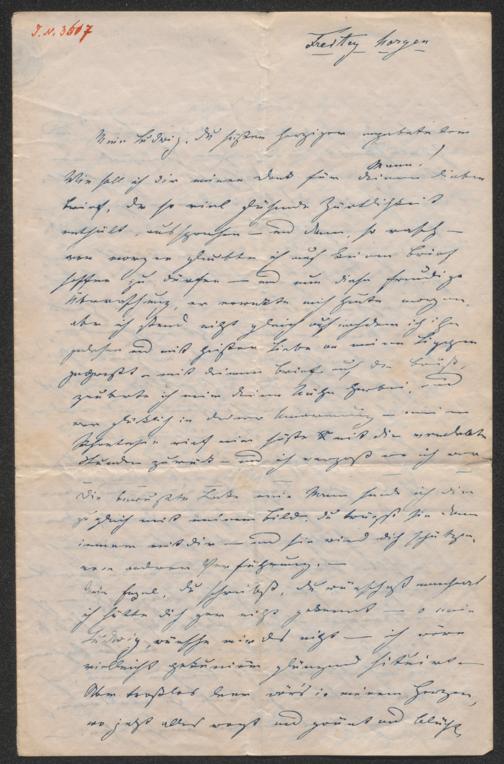 J. N. 3607
Freitag Morgen
Mein Ludwig, Du herziger angebeteter
Mann!
Wie soll ich dir meinen Dank für deinen lieben
Brief, der so viel glühende Zärtlichkeit
enthält, aussprechen — und dann, so rasch —
vor morgen glaubte ich auf keinen Brief
hoffen zu dürfen — und nun diese freudige
Überraschung, er weckte mich heute morgen
aber ich stand nicht gleich auf nachdem ich ihn
gelesen und mit Liebe an meine Lippen
gepreßt — mit deinem Brief auf der Brust,
zauberte ich mir deine Nähe herbei, und
war glücklich in deiner Umarmung — meine
Phantasie rief mir die
Stunden zurück — und ich vergaß wo ich war
Die mein Mann sende ich dir
zugleich mit meinem Bild, du trägst sie dann
immer mit dir — und sie wird dich schützen
vor anderen Verführung. —
Mein Engel, du schreibst, du wünschest manchmal
ich hätte dich gar nicht gekannt — o mein
Ludwig, wünsche mir das nicht — ich wäre
vielleicht pekuniär glänzend situirt —
Aber trostlos leer wär's in meinem Herzen,
wo jetzt alles wogt und grünt und blüht,